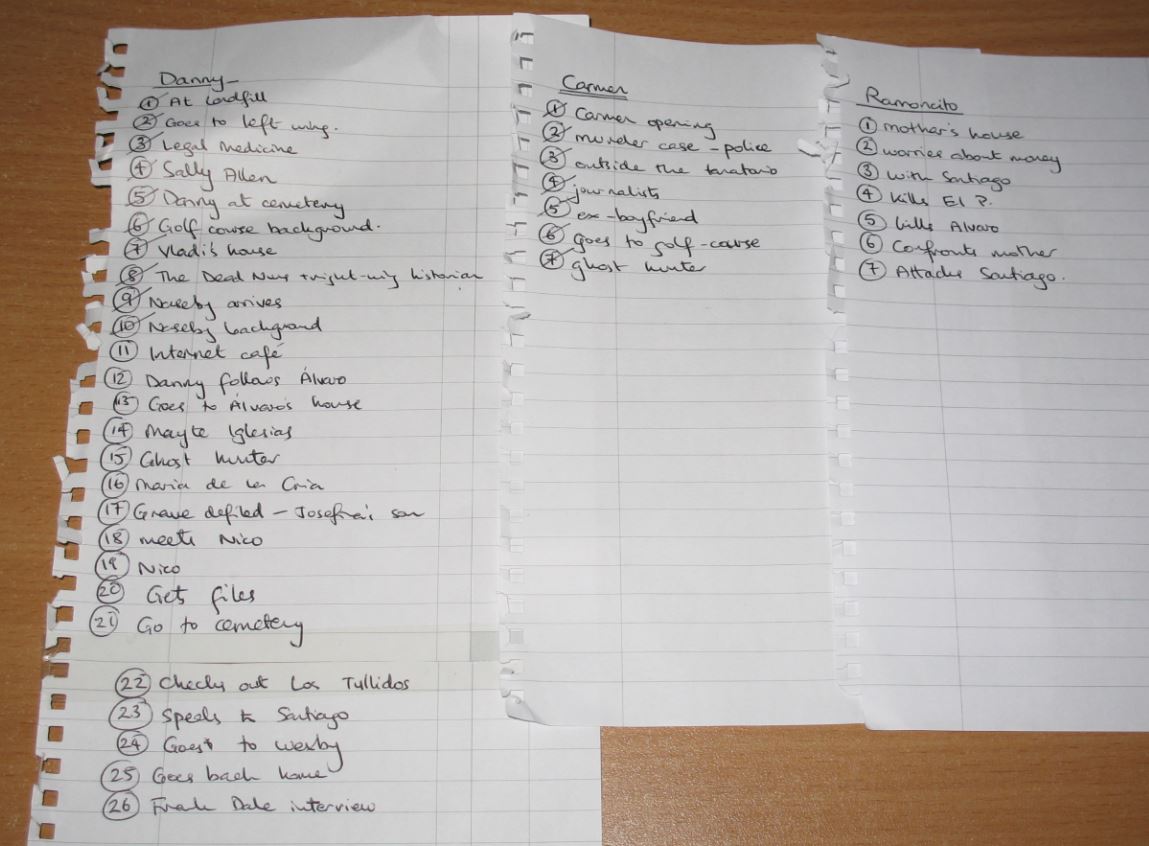 Danny-
1 At landfill
2 Goes to left wing.
3 Legal Medicine
4 Sally Allen
5 Danny at cemetery
6 Golf course background.
7 Vladi's house
8 The Dead Nuns + right-wing historian
9 Naseby arrives
10 Naseby background
11 Internet café
12 Danny follows Álvaro
13 Goes to Álvaro's house
14 Mayte Iglesias
15 Ghost hunter
16 Maria de la
17 Grave defiled - Josefina's son
18 meets Nico
19 Nico
20 Gets files
21 Go to cemetery
22 Checks out Los Tullidos
23 Speaks to Santiago
24 Goes to
25 Goes back home
26 Frank Dale interview
Carmen
1 Carmen opening
2 murder case - police
3 outside the tanatorio
4 journalists
5 ex-boyfriend
6 goes to golf-course
7 ghost hunter
Ramoncito
1 mother's house
2 worries about money
3 with Santiago
4 Kills El P.
5 kills Alvaro
6 Confronts mother
7 Attacks Santiago.